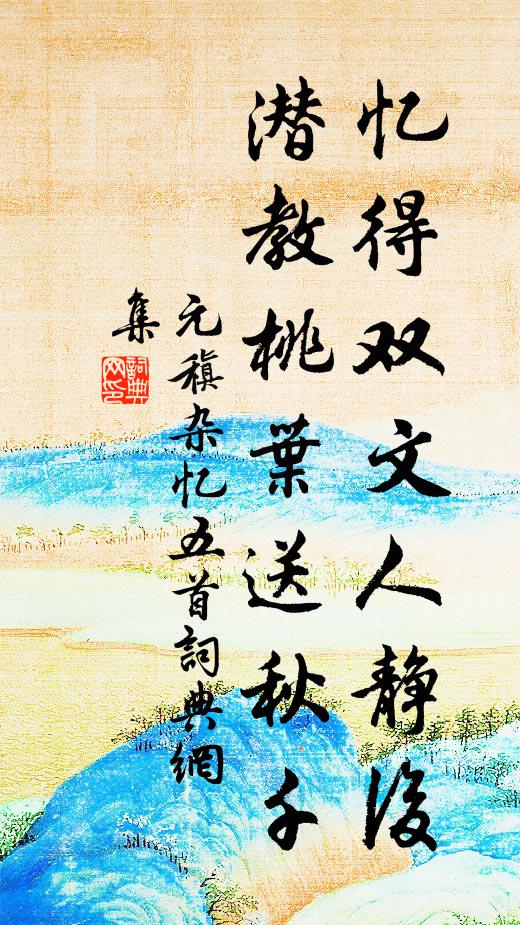 忆得双文人静后
潜教桃葉送秋千
元稹杂忆五首詞典網
集
詞典网印